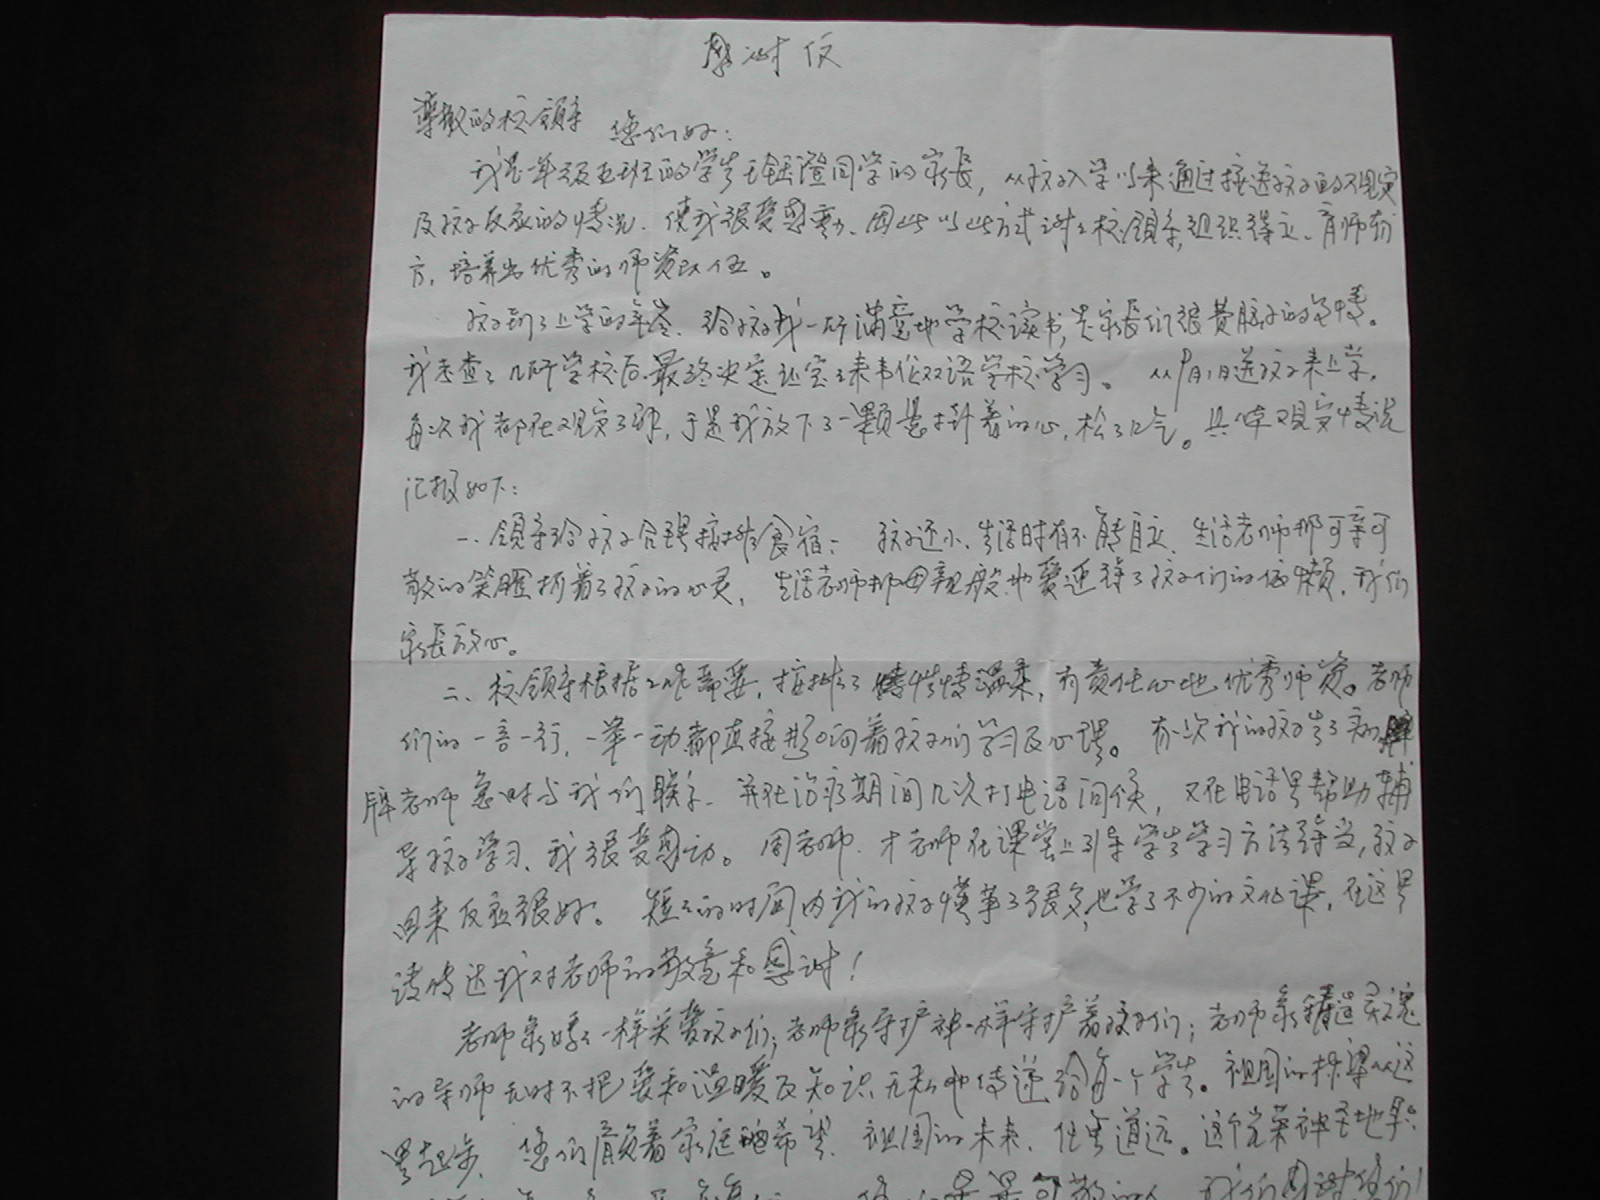 感谢信
尊敬的校领导 您们好：
我是一年级五班的学生 同学的家长，从孩子入学以来通过接送孩子的观察
及孩子反应的情况，使我很受感动、因此以此方式谢谢校领导，组织得立、育师有
方，培养出优秀的师资队伍。
孩子到了上学的年岁、给孩子找一所满意地学校读书，是家长们很费脑子的事情。
我考查了几所学校后，最终决定让宝宝来 双语学校学习。 从9月1日送孩子来上学，
每次我都在观察了解，于是我放下了一颗悬挂着的心，松了口气。具体观察情况
汇报如下：
一、领导给孩子合理按排食宿： 孩子还小、生活时有不能自立、生活老师那可亲可
敬的笑脸 着了孩子的心灵， 生活老师那母亲般地爱迎得了孩子们的依赖，我们
家长放心。
二、校领导根据工作需要，按排了 性情温柔，有责任心地优秀师资。老师
们的一言一行，一举一动都直接影响着孩子们学习及心理。 有一次我的孩子生了病
老师急时与我们联系、并在治疗期间几次打电话问候，又在电话里帮助辅
导孩子学习、我很受感动。周老师、才老师在课堂上引导学生学习方法得当，孩子
回来反应很好。 短短的时间内我的孩子懂事了很多，也学了不少的文化课，在这里
请传达我对老师的敬意和感谢！
老师象妈妈一样关爱孩子们；老师象守护神一样守护着孩子们；老师象铸造灵魂
的导师无时不把爱和温暖及知识、无私地传递给每一个学生。祖国的栋梁从这
里起步、您们肩负着家庭的希望、祖国的未来、任重道远。这个光荣神圣地
我们感谢您们！